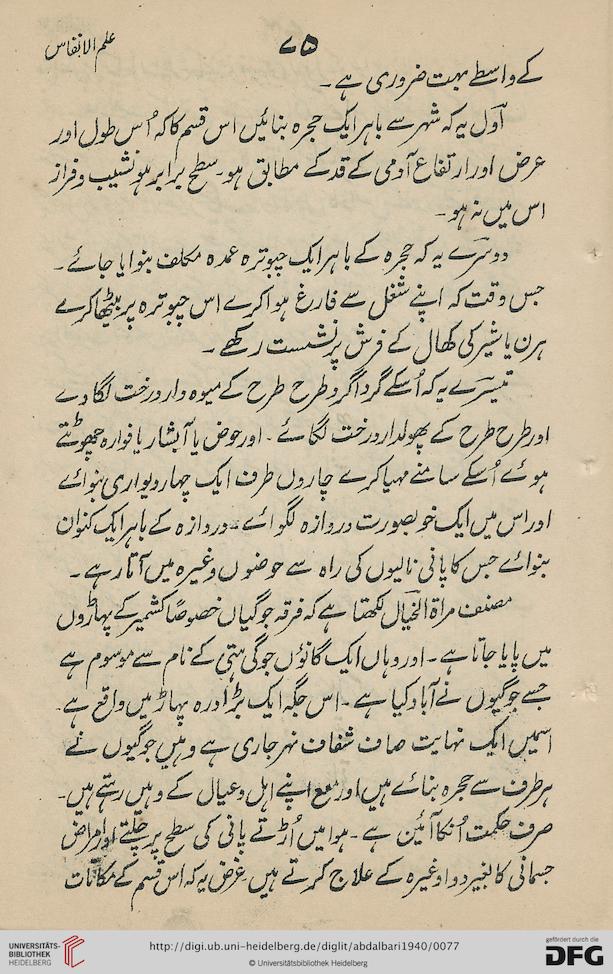 علم الانفاس
۷۵
کے واسطے بہت ضروری ہے۔
اوّل یہ کہ شہر سے باہر ایک حجرہ بنائیں اس قسم کا کہ اُس طول اور
عرض اور ارتفاع آدمی کے قد کے مطابق ہو۔ سطح برابر ہو نشیب و فراز
اس میں نہ ہو۔
دوسرے یہ کہ حجرہ کے باہر ایک چبوترہ عمدہ مکلف بنوایا جائے۔
جس وقت کہ اپنے شغل سے فارغ ہوا کرے اس چبوترہ پر بیٹھا کرے
ہرن یا شیر کی کھال کے فرش پر نشست رکھے۔
تیسرے یہ کہ اُسکے گردا گرد طرح طرح کے میوہ دار درخت لگا دے
اور طرح طرح کے پھولدار درخت لگائے۔ اور حوض یا آبشار یا فوارہ چھوٹتے
ہوئے اُسکے سامنے مہیا کرے چاروں طرف ایک چہار دیواری بنوائے
اور اس میں ایک خوبصورت دروازہ لگوائے۔ دروازہ کے باہر ایک کنوان
بنوائے جس کا پانی نالیوں کی راہ سے حوضوں وغیرہ میں آتا رہے۔
مصنف مراۃ الخیال لکھتا ہے کہ فرقہ جوگیاں خصوصًا کشمیر کے پہاڑوں
میں پایا جاتا ہے۔ اور وہاں ایک گانؤں جوگی ہتی کے نام سے موسوم ہے
جسے جوگیوں نے آباد کیا ہے۔ اس جگہ ایک بڑا درہ پہاڑ میں واقع ہے۔
اسمیں ایک نہایت صاف شفاف نہر جاری ہے وہیں جوگیوں نے
ہر طرف سے حجرہ بنائے ہیں اور مع اپنے اہل و عیال کے وہیں رہتے ہیں۔
صرف حکمت اُنکا آئین ہے۔ ہوا میں اُڑتے پانی کی سطح پر چلتے اور امراض
جسمانی کا بغیر دوا وغیرہ کے علاج کرتے ہیں۔ غرض یہ کہ اس قسم کے مکانات
UNIVERSITÄTS-
BIBLIOTHEK
HEIDELBERG
http://digi.ub.uni-heidelberg.de/diglit/abdalbari1940/0077
© Universitätsbibliothek Heidelberg
gefördert durch die
DFG